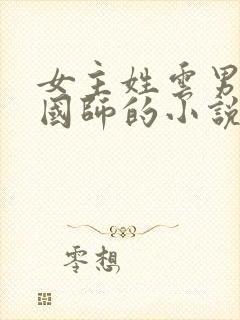 女主姓雲男
國師的小說
零想